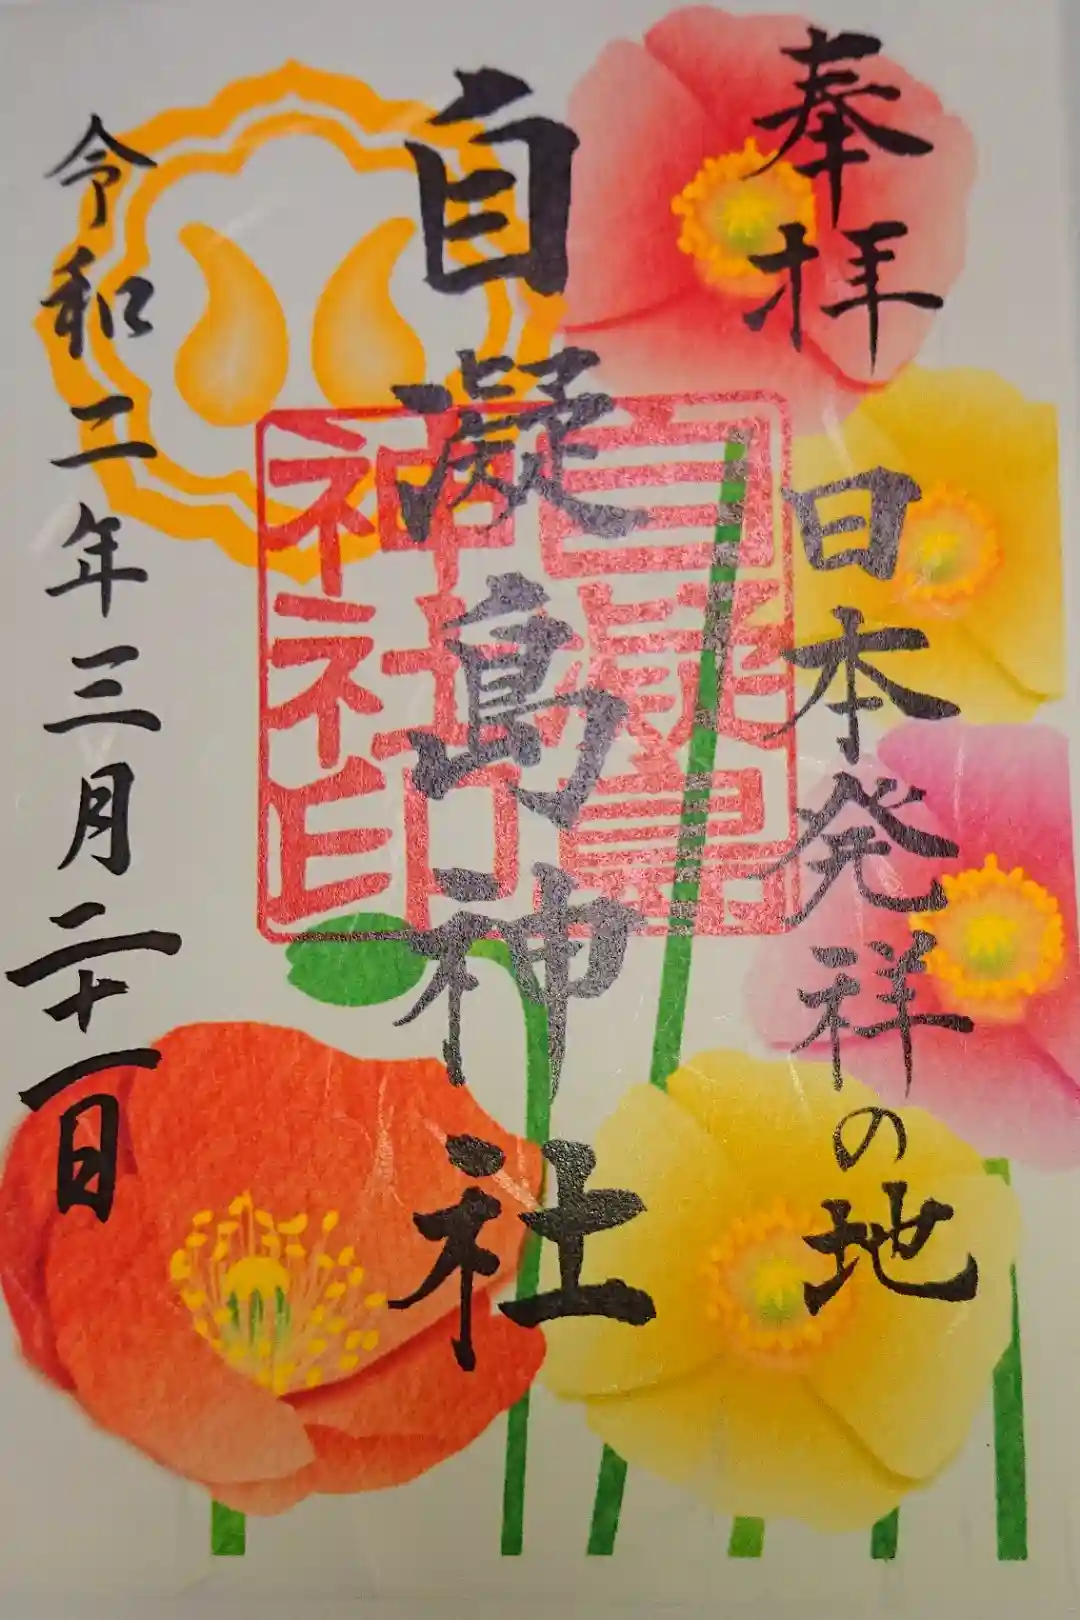 奉拝
日本発祥の地
自凝島神社
自凝島
神社印
令和二年三月二十一日